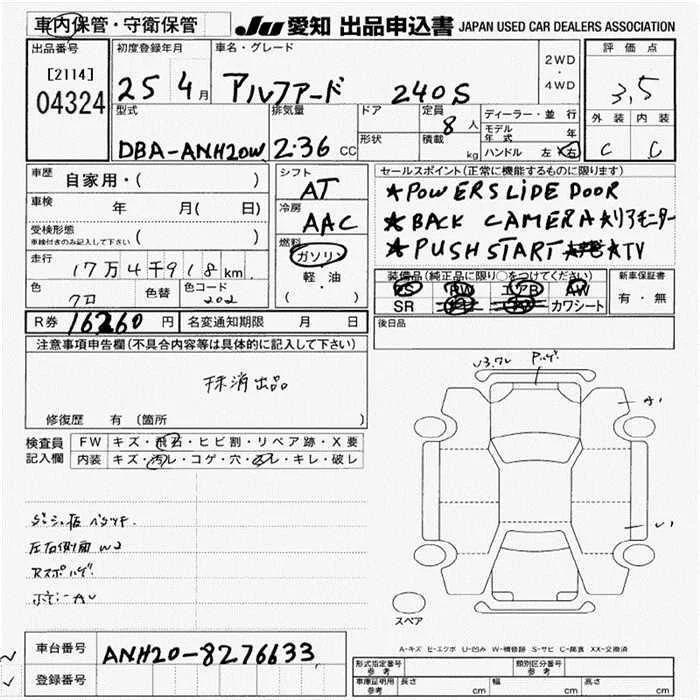 車内保管・守衛保管
JU 愛知 出品申込書 JAPAN USED CAR DEALERS ASSOCIATION
出品番号
[2114]
04324
初度登録年月
25 4月
車名・グレード
アルファード 240S
2WD
・
4WD
評価点
3,5
外装 内装
C C
型式
DBA-ANH20W
排気量
2.36 CC
ドア
形状
定員
8人
積載
kg
ディーラー・並行
モデル年式 年
ハンドル 左・右
車歴
自家用・( )
車検
年 月( 日)
受検形態
車検付きのみ記入して下さい ( )
走行
17万4千918km
色
クロ
色替
色コード
202
シフト
AT
冷房
AAC
燃料
ガソリン
軽・油
( )
セールスポイント(正常に機能するものに限ります)
★POWERSLIDE DOOR
★BACK CAMERA ★リアモニター
★PUSH START ★TV
装備品(純正品に限り○をつけてください)
PS PW エアB AW
SR カワシート
新車保証書
有・無
後日品
R券 16260 円
名変通知期限 月 日
注意事項申告欄(不具合内容等は具体的に記入して下さい)
抹消出品
修復歴 有 〔箇所 〕
検査員
記入欄
FW キズ・飛石・ヒビ割・リペア跡・X要
内装 キズ・汚レ・コゲ・穴・スレ・キレ・破レ
左右側面 W2
スペア
A-キズ E-エクボ U-凹み W-補修跡 S-サビ C-腐食 XX-交換済
車台番号
ANH20-8276633
登録番号
形式指定番号
参考
類別区分番号
車庫証明用
参考
長さ cm
幅 cm
高さ cm